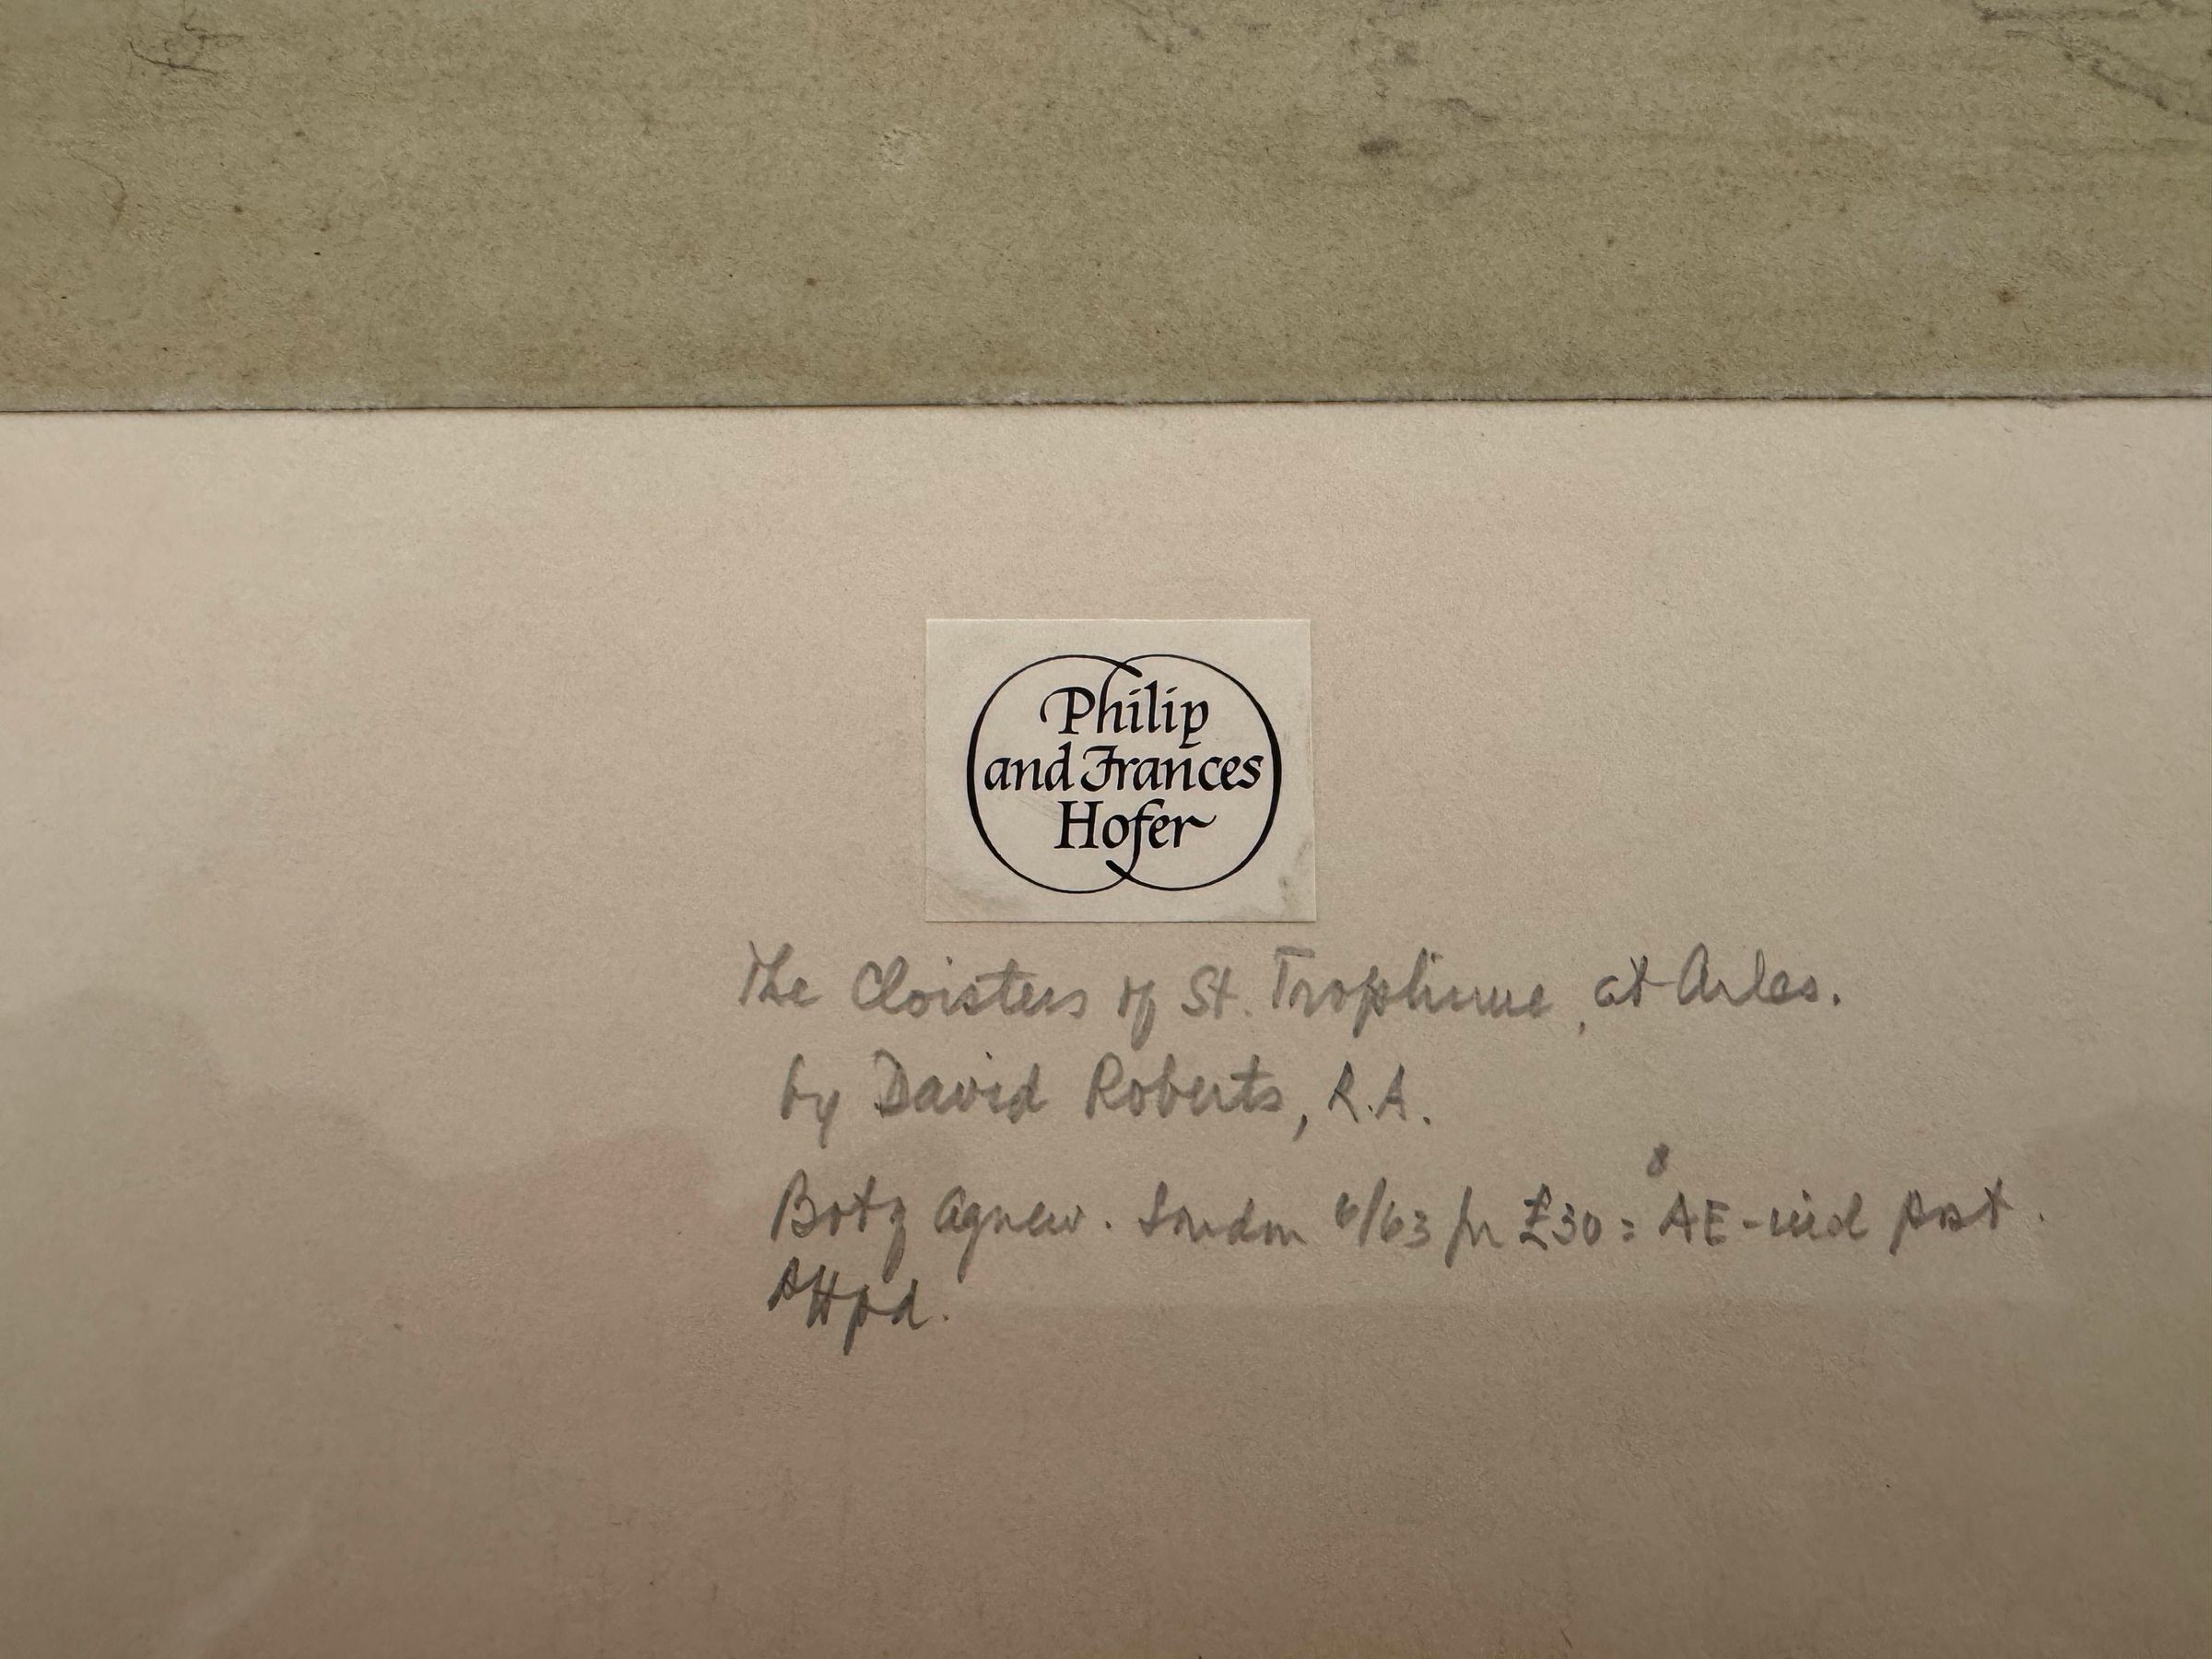 Philip
and Frances
Hofer
The Cloisters of St. Trophime, at Arles.
by David Roberts, R.A.
Agnew. London 6/63 for £30 =